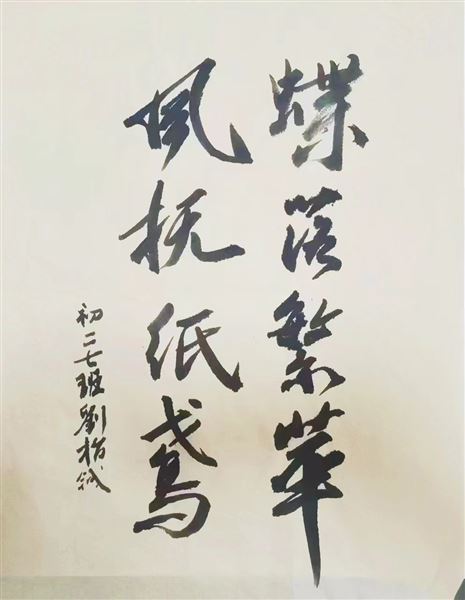 蝶落繁華
风抚纸鸢
初二七班劉柏誠